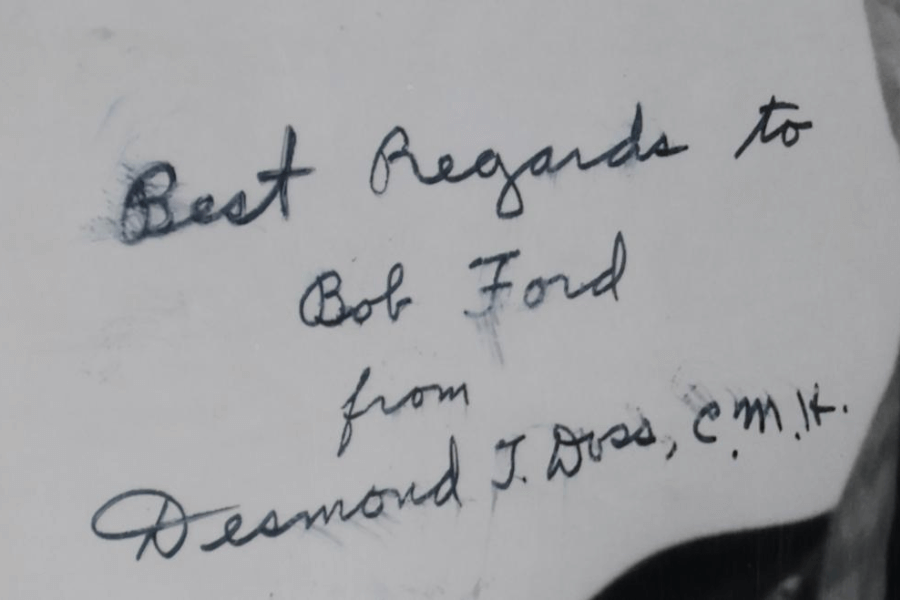 Best Regards to
Bob Ford
from
Desmond T. Doss, C.M.H.